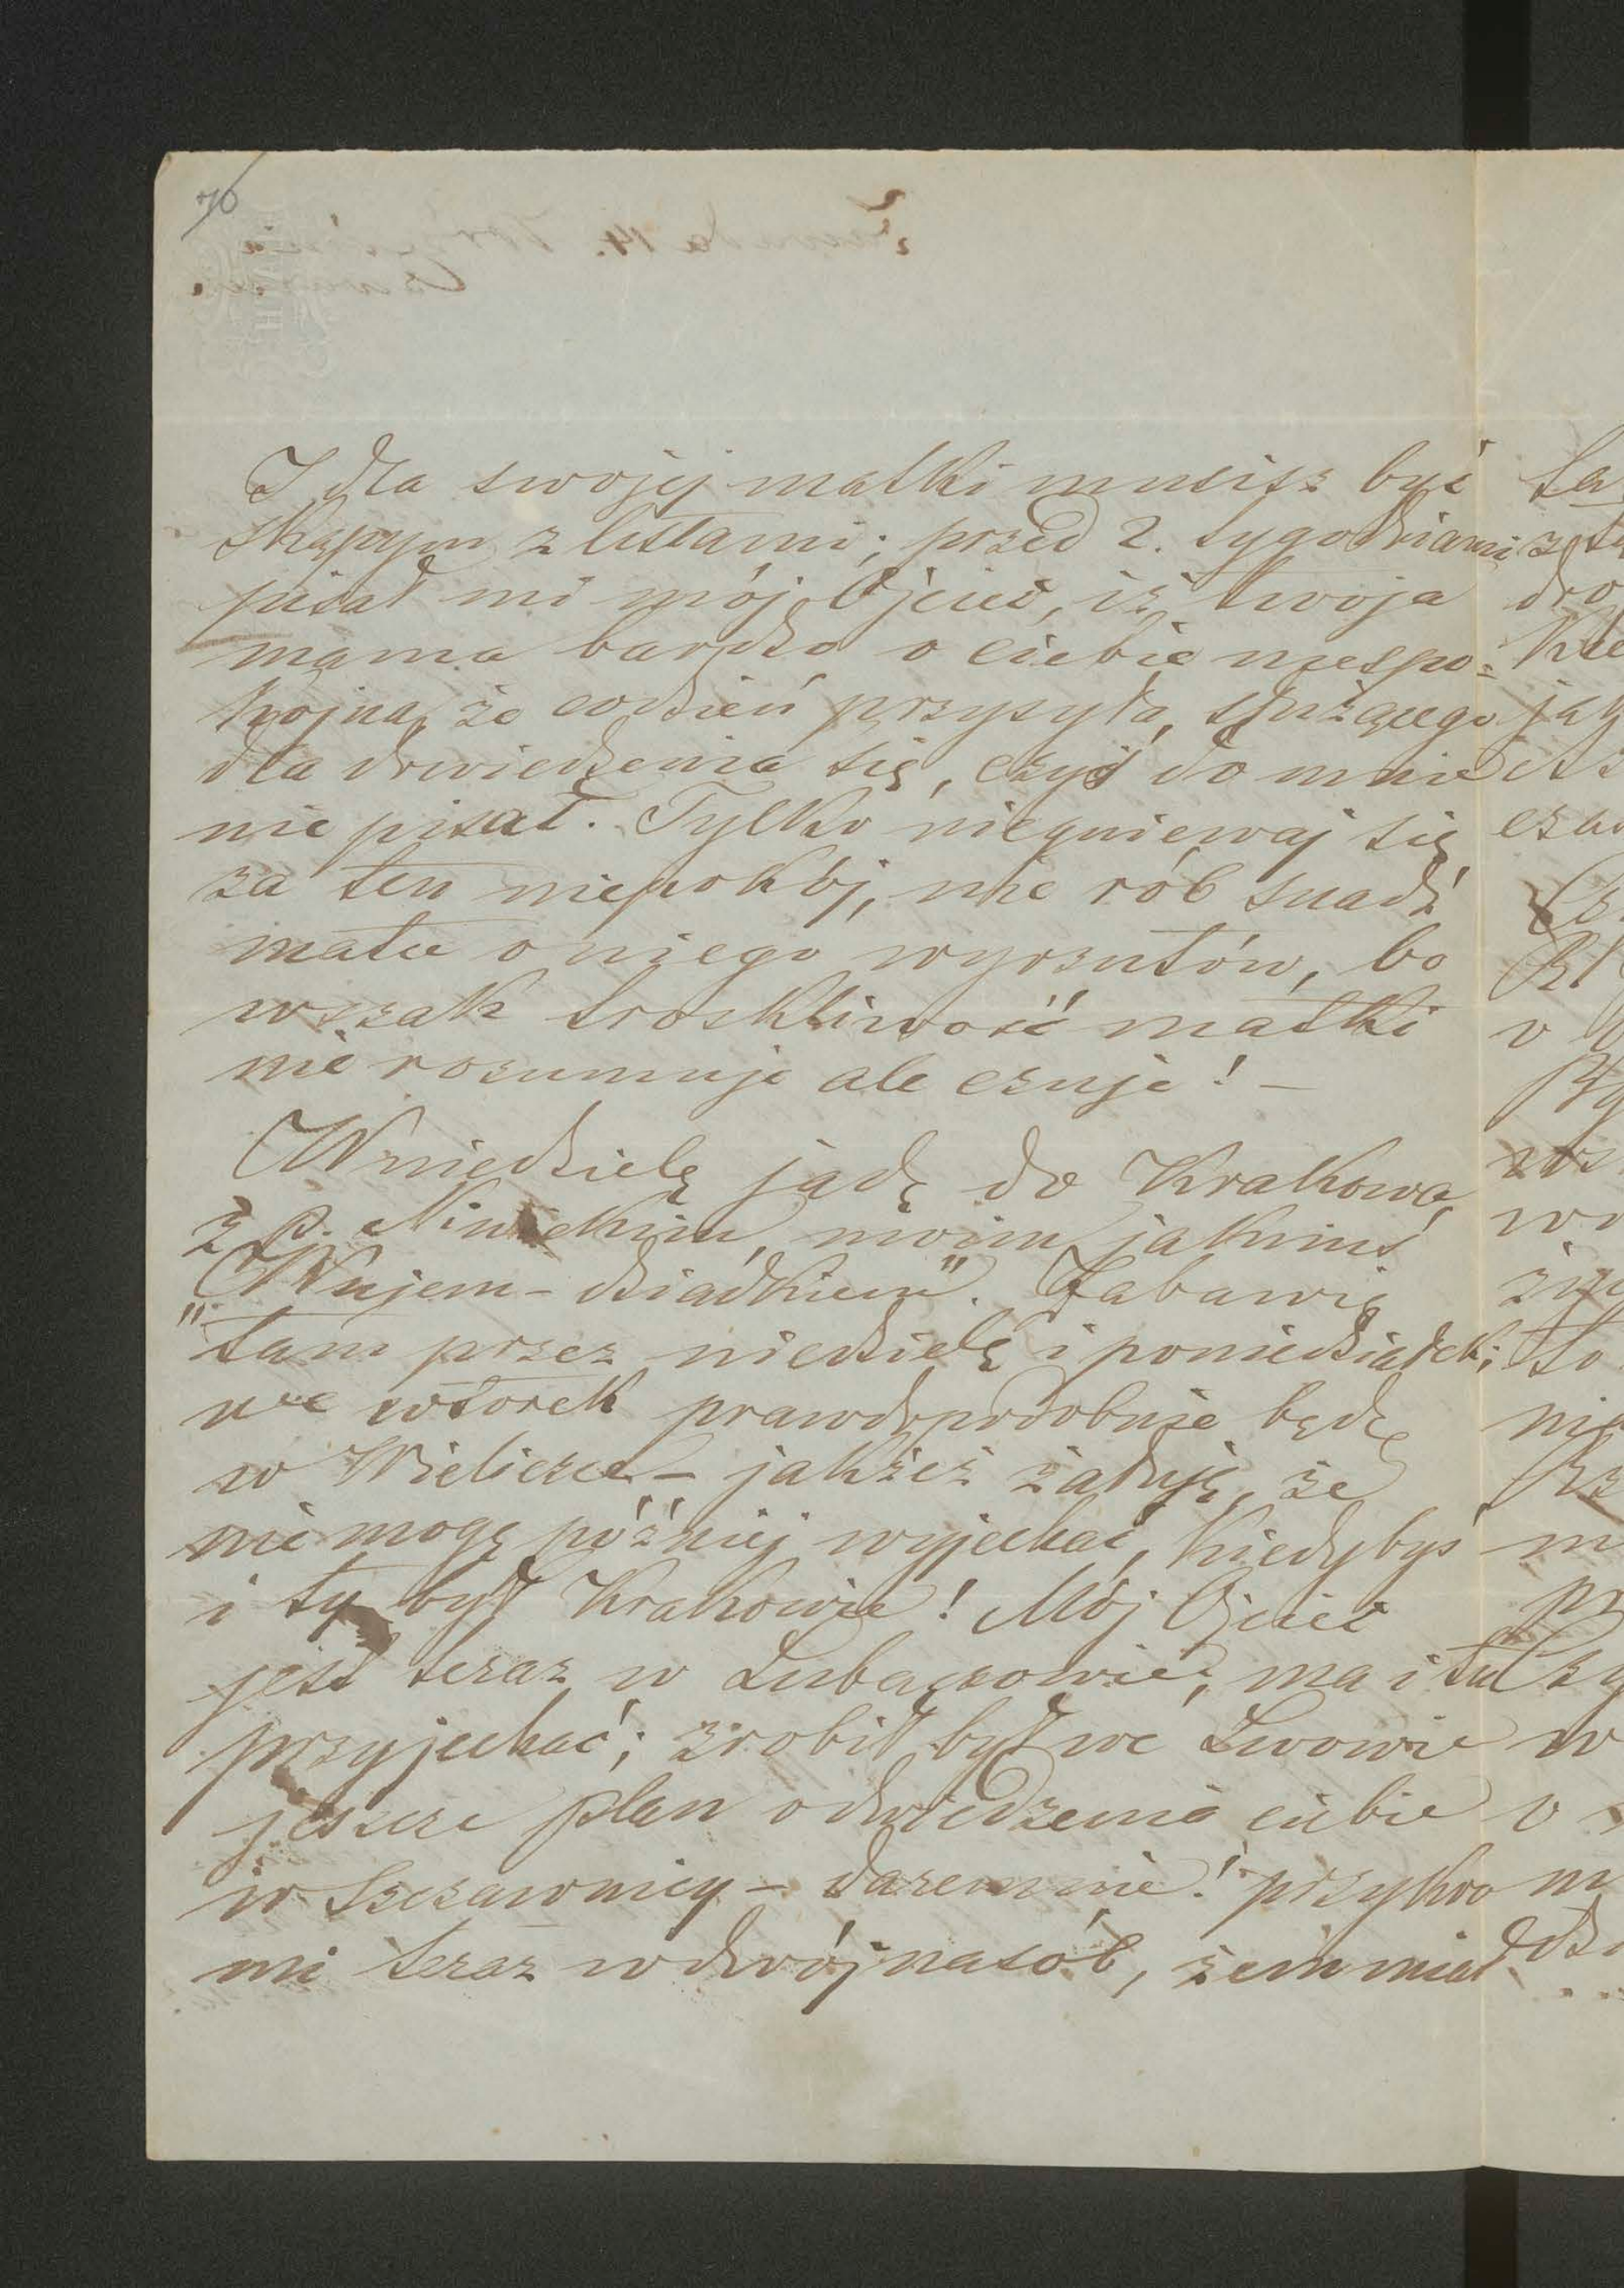 70
I dla swojej matki musisz być
skąpym z listami; przed 2. tygodniami
pisał mi mój Ojciec, iż twoja
mama bardzo o ciebie niespo=
kojna, że codzień przysyła służącego
dla dowiedzenia się, czyś do mnie
nie pisał. Tylko niegniewaj się
za ten niepokój, nie rób snadź
matce o niego wyrzutów, bo
wszak troskliwość matki
nie rozumuje ale czuje! –
W niedzielę jadę do Krakowa,
z p. moim jakimś
„Wujem-dziadkiem". Zabawię
tam przez niedzielę i poniedziałek;
we wtorek prawdopodobnie będę
w Wieliczce – jakżeż żałuję, że
nie mogę później wyjechać, kiedybyś
i ty był Krakowie! Mój Ojciec
jest teraz w Lubaczowie, ma i tu
przyjechać; zrobił był we Lwowie
jeszcze plan odwiedzenia ciebie
w Szczawnicy – daremnie! przykro
mi teraz wdwójnasób, żem miał